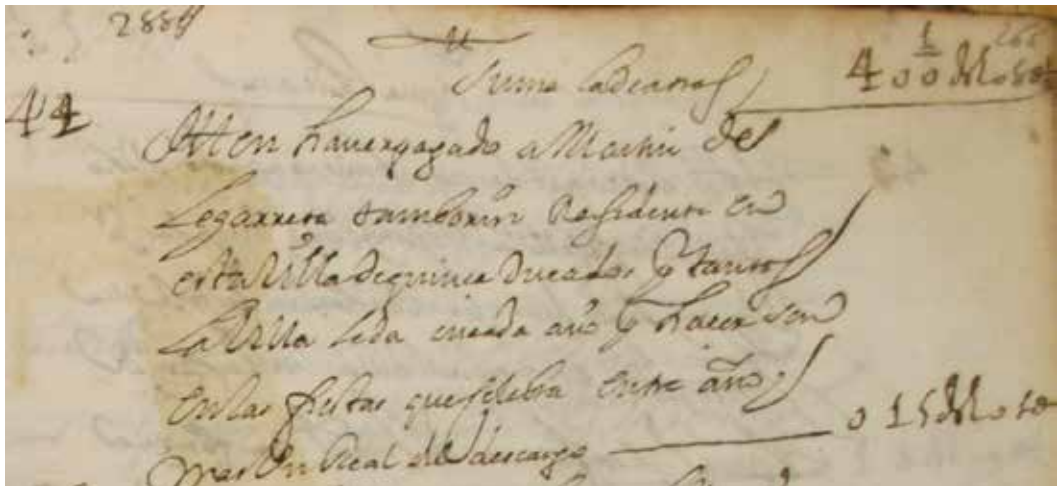 288
Suma la de atras 400
44
Itten haver pagado a Martin de
Legarreta tamborin Residente en
esta Villa de quince Ducados tantos
La Villa le da en cada año hacer son
en las fiestas que selebra entre año
mas Un Real del descargo 015